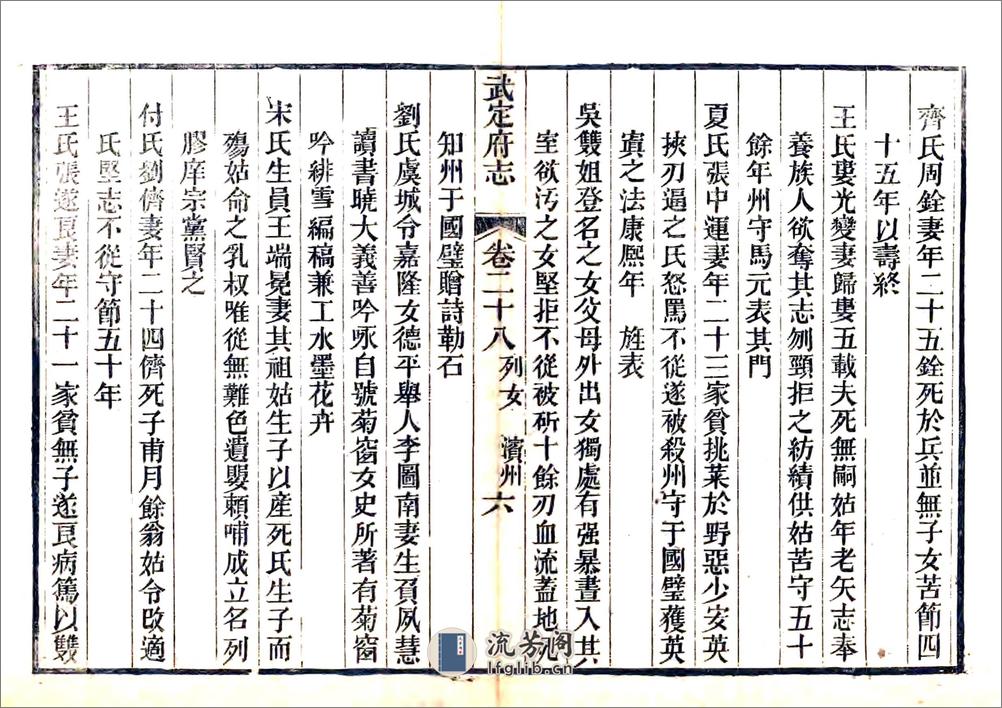 齊氏周銓妻年二十五銓死於兵並無子女苦節四
十五年以壽終
王氏婁光變妻歸婁五載夫死無嗣姑年老矢志奉
養族人欲奪其志刎頸拒之紡績供姑苦守五十
餘年州守馬元表其門
夏氏張中運妻年二十三家貧挑菜於野惡少安英
挾刃逼之氏怒罵不從遂被殺州守于國璧獲英
寘之法康熙年 旌表
吳雙姐登名之女父母外出女獨處有强暴晝入其
室欲汚之女堅拒不從被斫十餘刃血流蓋地死
武定府志 卷二十八 列女 濱州 六
知州于國璧贈詩勒石
劉氏虞城令嘉隆女德平舉人李圖南妻生負夙慧
讀書曉大義善吟咏自號菊窗女史所著有菊窗
吟緋雪編稿兼工水墨花卉
宋氏生員王端冕妻其祖姑生子以産死氏生子而
殤姑命之乳叔雅從無難色遺嬰頼哺成立名列
膠庠宗黨賢之
付氏劉儕妻年二十四儕死子甫月餘翁姑令改適
氏堅志不從守節五十年
王氏張遂良妻年二十一家貧無子遂良病篤以雙
流芳阁
lfglib.cn